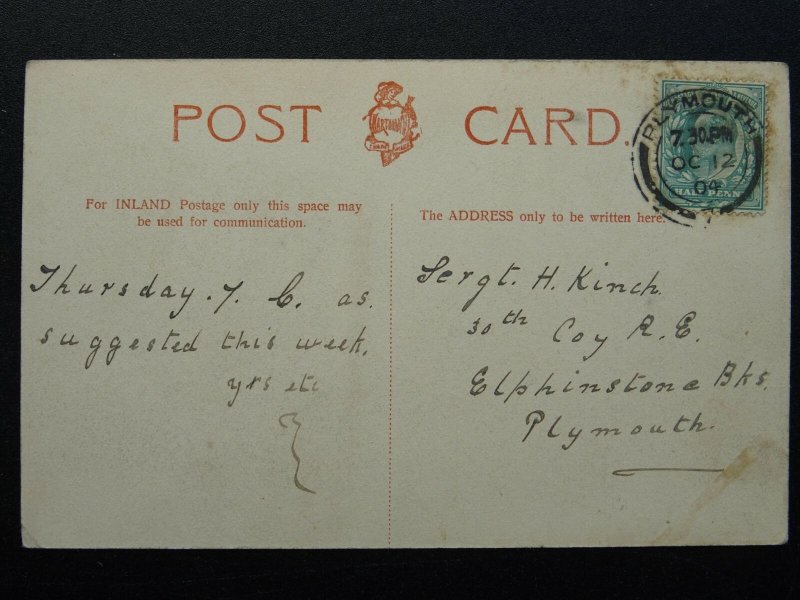 POST CARD.
PLYMOUTH
7.30PM
OC 12
04
HALFPENNY
For INLAND Postage only this space may
be used for communication.
The ADDRESS only to be written here.
Thursday. 7. C. as.
suggested this week.
yrs etc
Sergt. H. Kinch.
30th Coy R. E.
Elphinstone Bks.
Plymouth.